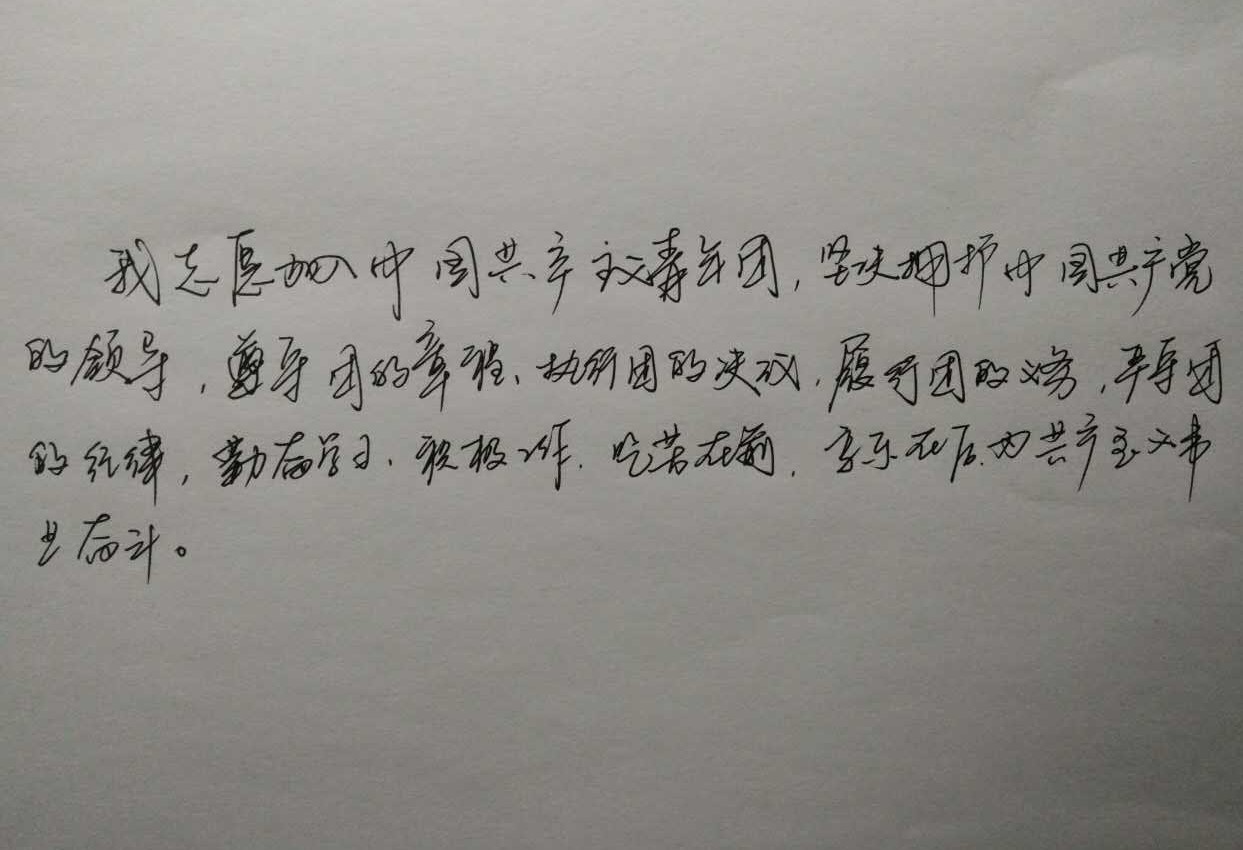 我志愿加入中国共产主义青年团,坚决拥护中国共产党
的领导,遵守团的章程、执行团的决议,履行团的义务,严守团
的纪律,勤奋学习、积极工作、吃苦在前、享乐在后、为共产主义事
业奋斗。